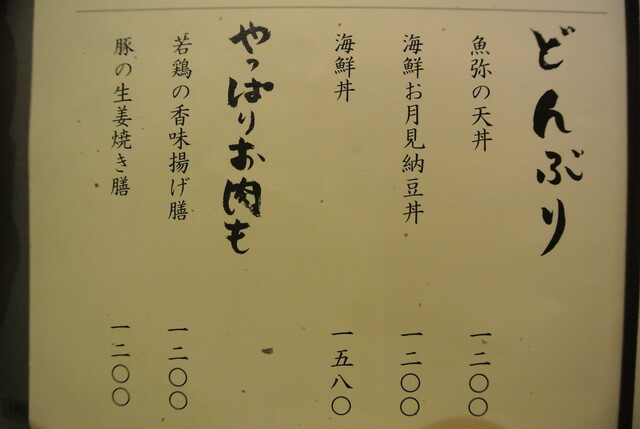 どんぶり
魚弥の天丼 一二〇〇
海鮮お月見納豆丼 一二〇〇
海鮮丼 一五八〇
やっぱりお肉も
若鶏の香味揚げ膳 一二〇〇
豚の生姜焼き膳 一二〇〇